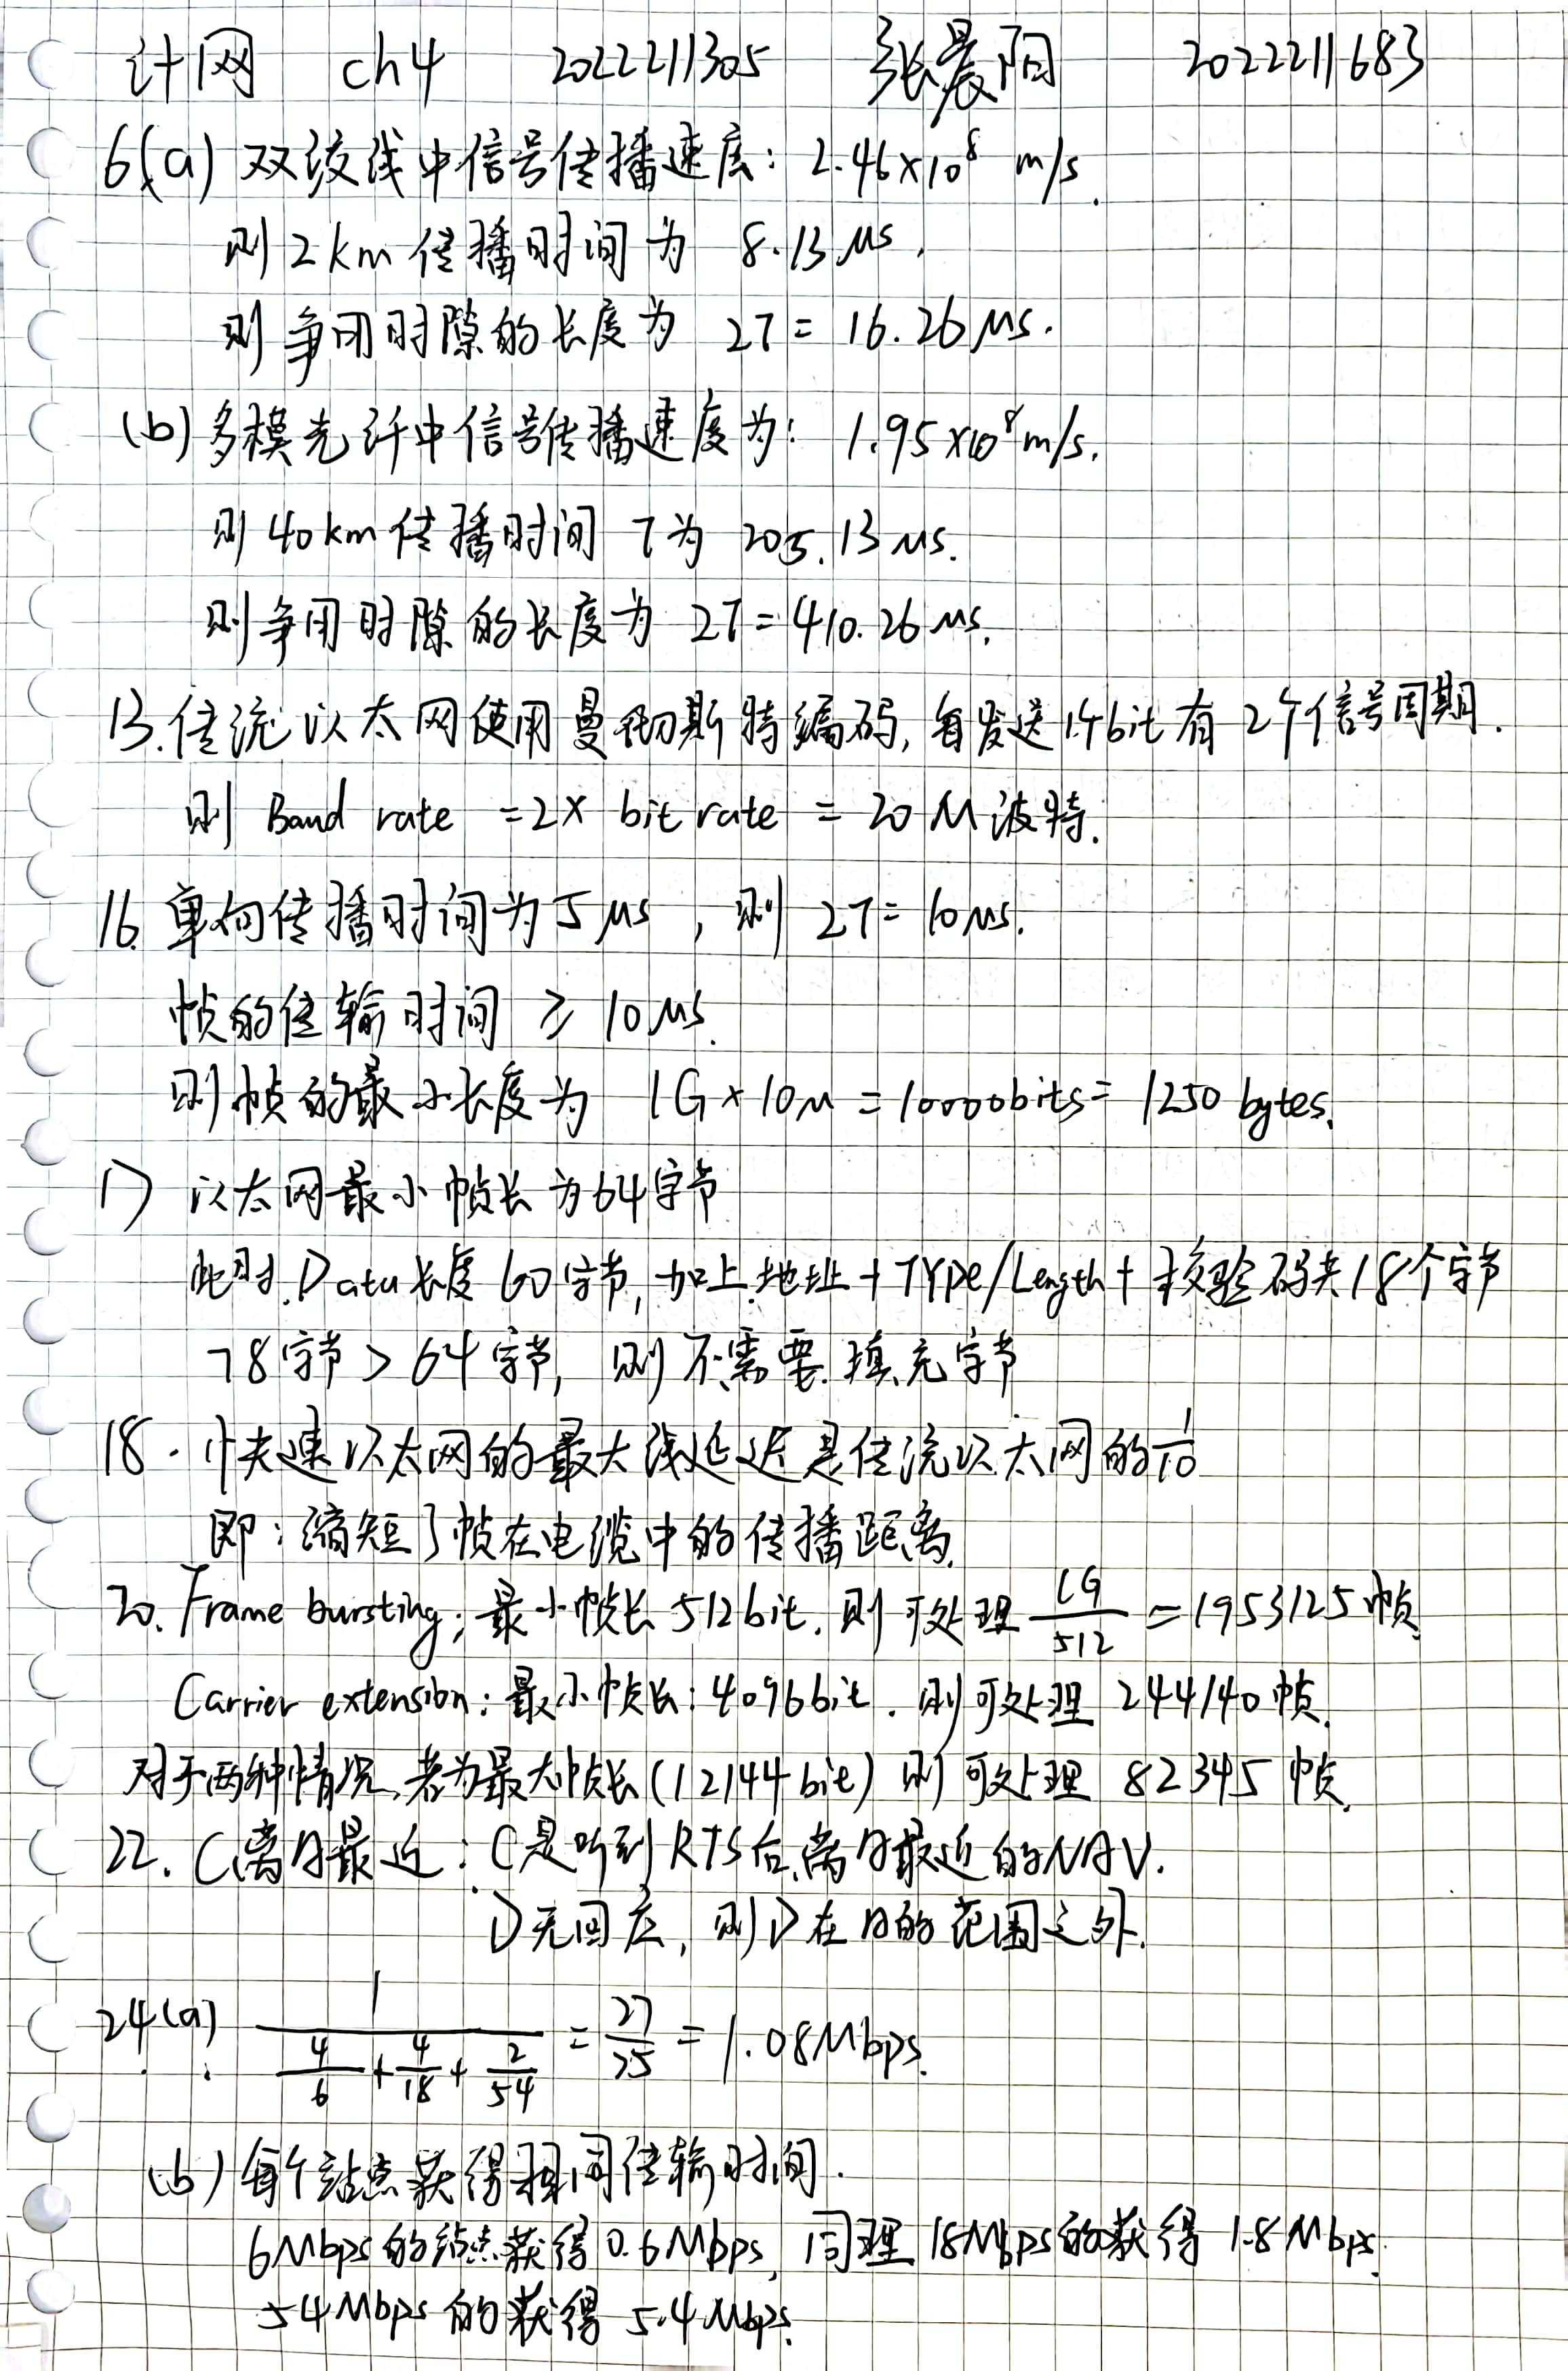 计网 ch4 2022211305 张晨阳 2022211683
6(a) 双绞线中信号传播速度: 2.46×10⁸ m/s.
则 2km 传播时间为 8.13 μs,
则争用时隙的长度为 2τ= 16.26 μs.
(b) 多模光纤中信号传播速度为: 1.95×10⁸ m/s.
则 40km 传播时间 τ为 205.13 μs.
则争用时隙的长度为 2τ=410.26 μs.
13.传统以太网使用曼彻斯特编码, 每发送1个bit有2个信号周期.
则 Baud rate =2× bit rate = 20 M 波特.
16. 单向传播时间为5 μs , 则 2τ= 10 μs.
帧的传输时间 ≥ 10 μs.
则帧的最小长度为 1G × 10μ = 10000bits= 1250 bytes.
17 以太网最小帧长为64字节
此时.Data长度 60字节, 加上地址 + TYPe/Length + 校验码共18个字节
78字节 > 64字节, 则不需要填充字节
18. 快速以太网的最大线延迟是传统以太网的1/10
即: 缩短了帧在电缆中的传播距离.
20. Frame bursting; 最小帧长 512bit. 则可处理 1G/512 = 1953125 帧.
Carrier extension: 最小帧长: 4096bit. 则可处理 244140 帧.
对于两种情况, 若为最大帧长(12144 bit) 则可处理 82345 帧.
22. C离A最近: C是听到RTS后离A最近的NAV.
D无回应, 则D在A的范围之外.
24(a) 1/(4/6 + 4/18 + 2/54) = 27/25 = 1.08Mbps.
(b) 每个站点获得相同传输时间.
6Mbps的站点获得 0.6 Mbps, 同理 18Mbps的获得 1.8 Mbps.
54 Mbps 的获得 5.4 Mbps.